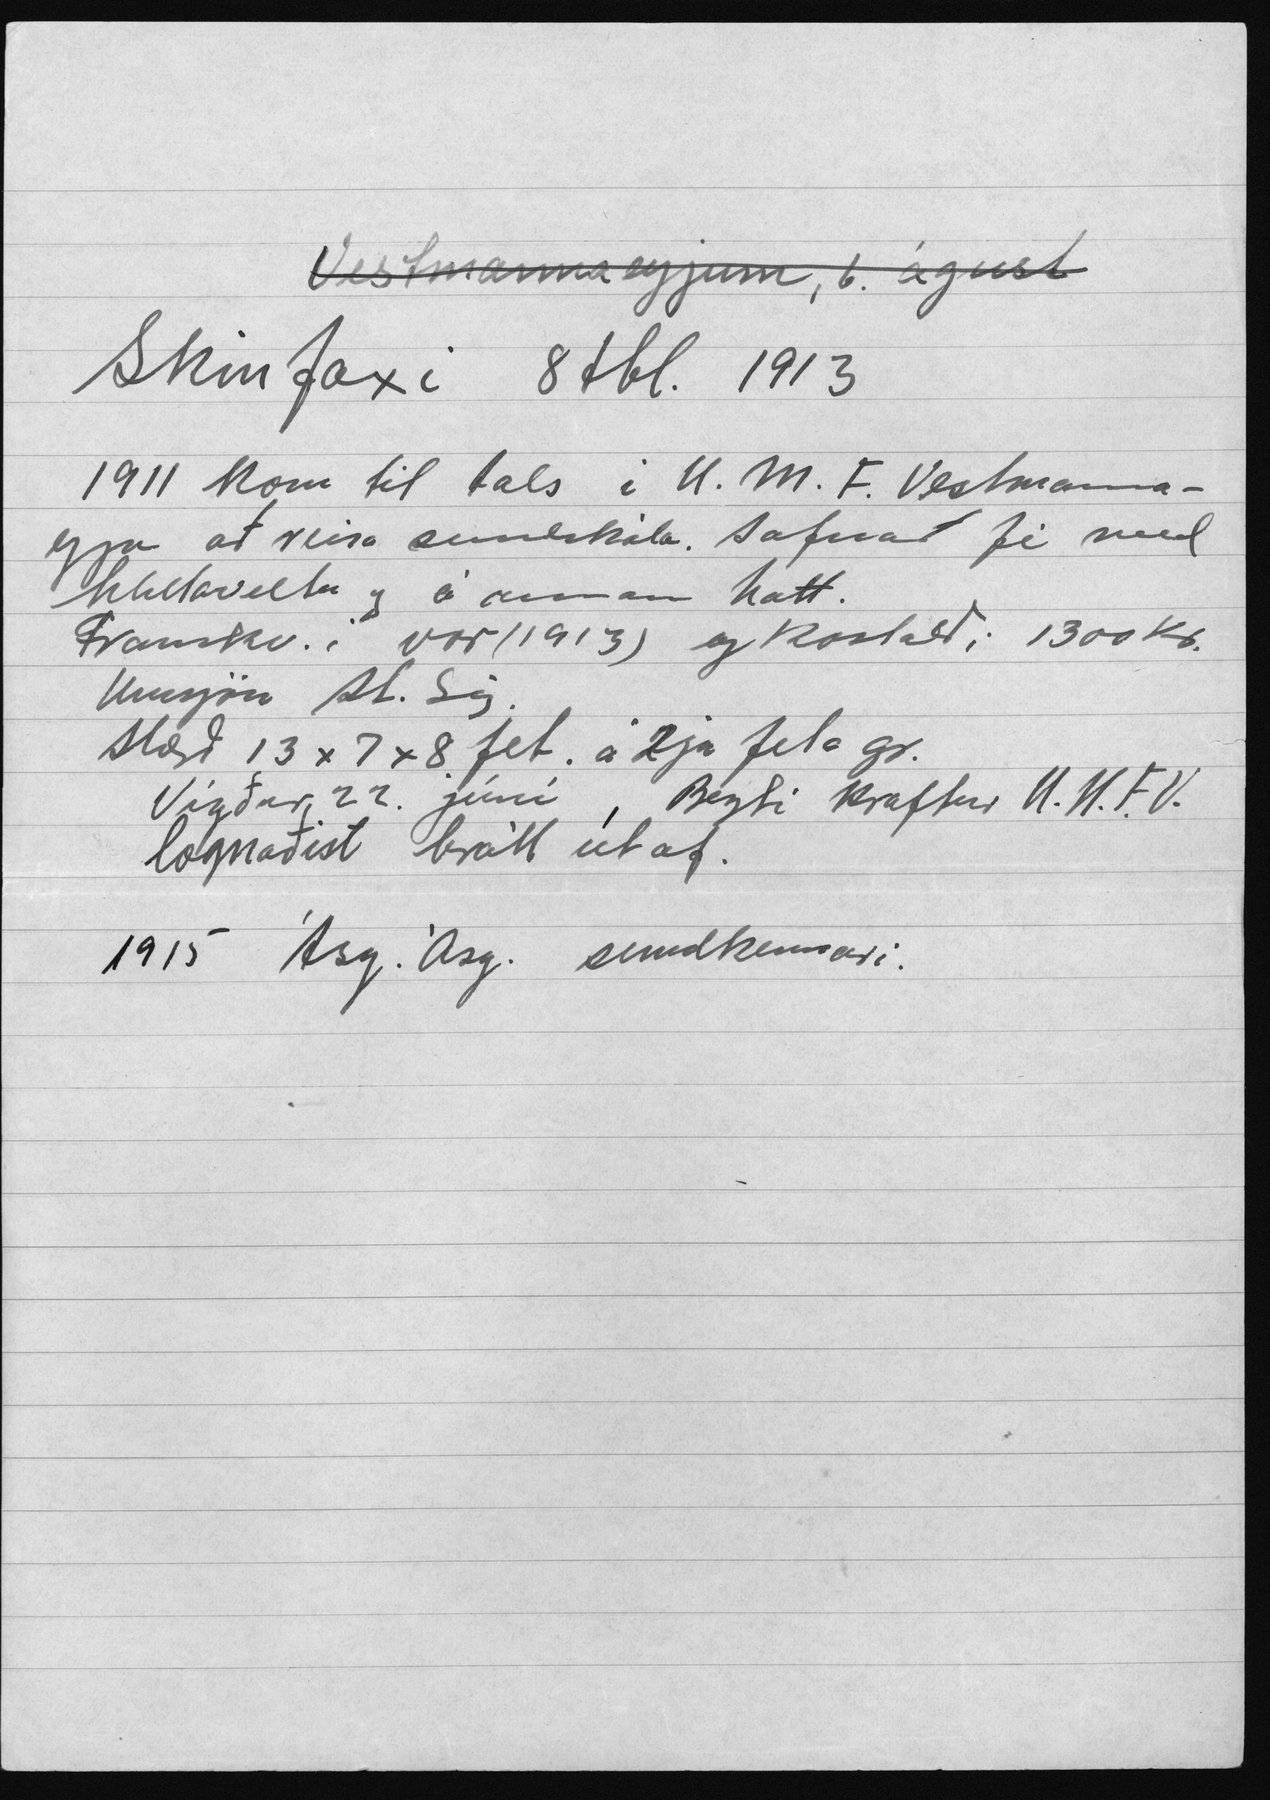 Vestmannaeyjum, 6. ágúst
Skinfaxi 8 tbl. 1913
1911 kom til tals í U. M. F. Vestmanna-
eyja að reisa sundskála. Safnað fé með
hlutaveltu og á annan hátt.
Framkv. í vor (1913) og kostaði 1300 kr.
Umsjón St. Sig.
Stærð 13 x 7 x 8 fet. á 2ja feta gr.
Vígður 22. júní, Beysti kraftur U. M. F. V.
lognaðist brátt út af.
1915 Ásg. Ásg. sundkennari.